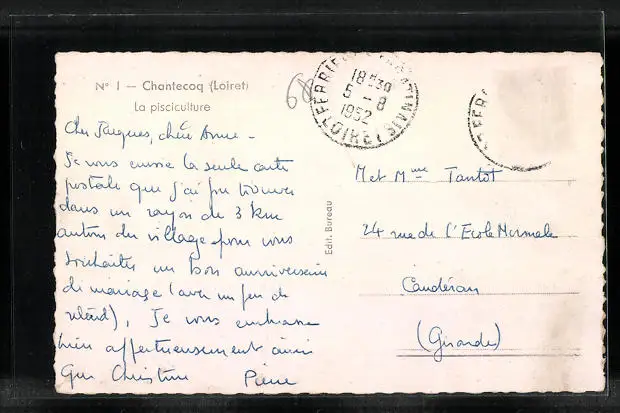 N° 1 — Chantecoq (Loiret)
La pisciculture
Cher Jacques, chère Anne –
Je vous envoie la seule carte
postale que j'ai pu trouver
dans un rayon de 3 km
autour du village pour vous
souhaiter un bon anniversaire
de mariage (avec un peu de
retard), Je vous embrasse
bien affectueusement ainsi
que Christine Pierre
Edit. Bureau
FERRIERES GATINAIS
18H30
5 - 8
1952
LOIRET
M et Mme Tantôt
24 rue de l'Ecole Normale
Caudéran
(Gironde)